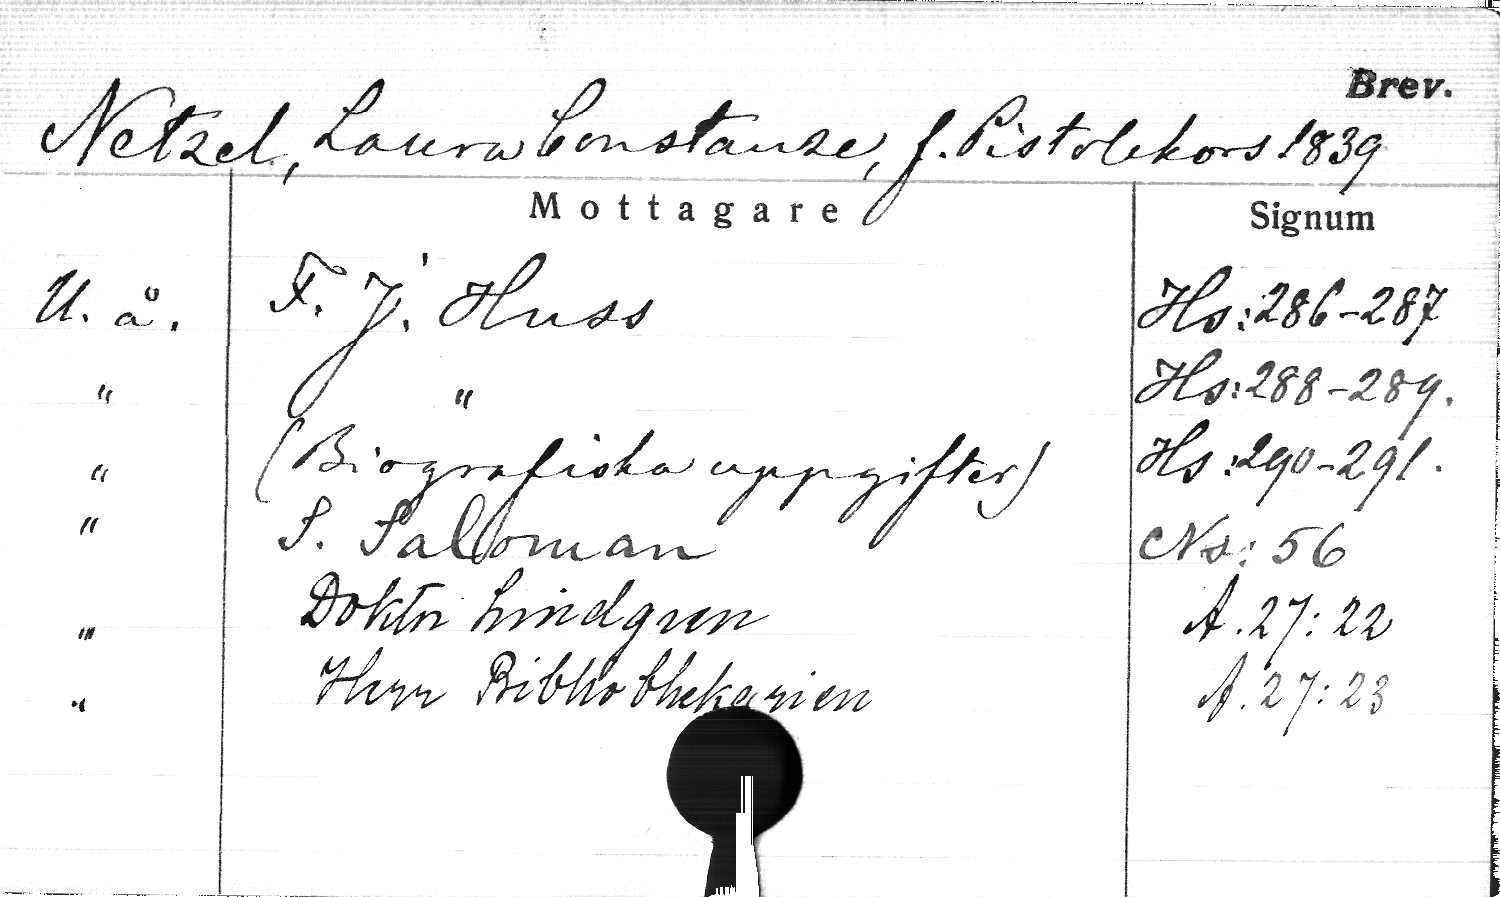 Brev.
Netzel, Laura Constanze, f. Pistolekors 1839
Mottagare Signum
U. å. F. J. Huss Hs: 286-287
" " Hs: 288-289.
" (Biografiska uppgifter) Hs: 290-291.
" S. Saloman Ns: 56
" Doktor Lindgren A. 27: 22
" Herr Bibliothekarien A. 27: 23